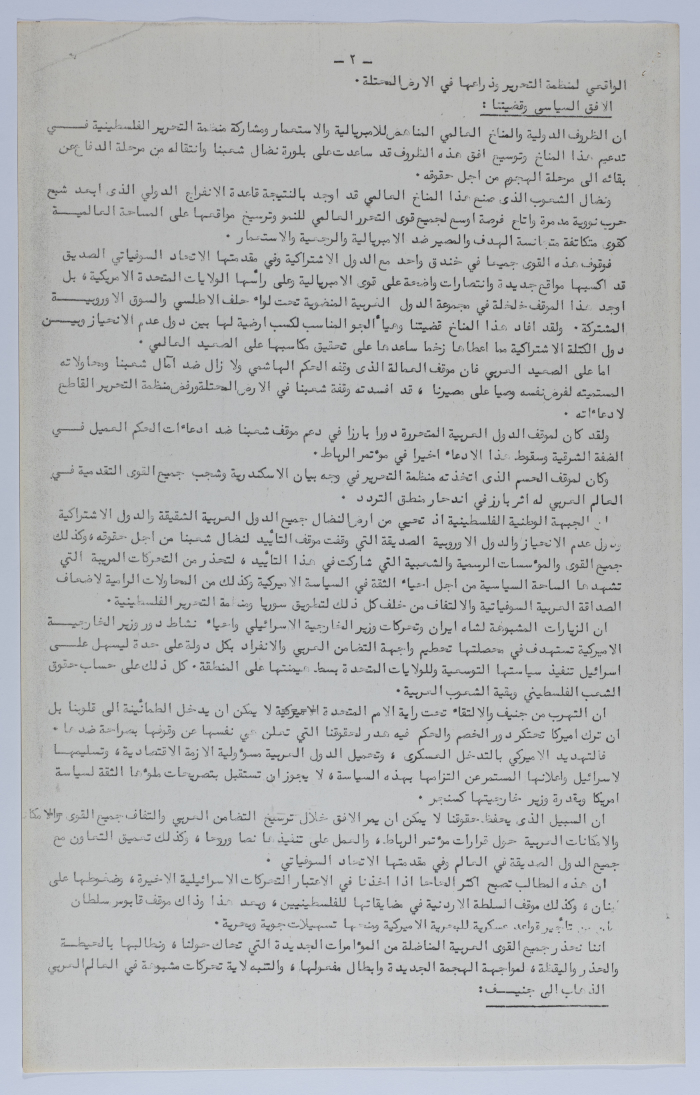 - ٢ -
الواقعي لمنظمة التحرير وذراعها في الارض المحتلة •
الافق السياسي وقضيتنا :
ان الظروف الدولية والمناخ العالمي المناهض للامبريالية والاستعمار ومشاركة منظمة التحرير الفلسطينية فـــي
تدعيم هذا المناخ وتوسيع افق هذه الظروف قد ساعدت على بلورة نضال شعبنا وانتقاله من مرحلة الدفاع عن
بقائه الى مرحلة الهجوم من اجل حقوقه •
ونضال الشعوب الذى صنع هذا المناخ العالمي قد اوجد بالنتيجة قاعدة الانفراج الدولي الذى ابعد شبح
حرب نووية مدمرة واتاح فرصة اوسع لجميع قوى التحرر العالمي للنمو وترسيخ مواقعها على الساحة العالميـــة
كقوى متكاتفة متجانسة الهدف والمصير ضد الامبريالية والرجعية والاستعمار •
فوقوف هذه القوى جميعا في خندق واحد مع الدول الاشتراكية وفي مقدمتها الاتحاد السوفياتي الصديق
قد اكسبها مواقع جديدة وانتصارات واضحة على قوى الامبريالية وعلى رأسها الولايات المتحدة الامريكية ، بل
اوجد هذا الموقف خلخلة في مجموعة الدول الغربية المنضوية تحت لواء حلف الاطلسي والسوق الاوروبيــــة
المشتركة • ولقد افاد هذا المناخ قضيتنا وهيأ الجو المناسب لكسب ارضية لها بين دول عدم الانحياز وبيـــن
دول الكتلة الاشتراكية مما اعطاها زخما ساعدها على تحقيق مكاسبها على الصعيد العالمي •
اما على الصعيد العربي فان موقف العمالة الذى وقفه الحكم الهاشمي ولا زال ضد آمال شعبنا ومحاولاته
المستميته لفرض نفسه وصيا على مصيرنا ، قد افسدته وقفة شعبنا في الارض المحتلة ورفض منظمة التحرير القاطع
لادعائاته •
ولقد كان لموقف الدول العربية المتحررة دورا بارزا في دعم موقف شعبنا ضد ادعاءات الحكم العميل فـــي
الضفة الشرقية وسقوط هذا الادعاء اخيرا في مؤتمر الرباط •
وكان لموقف الحسم الذى اتخذته منظمة التحرير في وجه بيان الاسكندرية وشجب جميع القوى التقدمية في
العالم العربي له اثر بارز في اندحار منطق التردد •
ان الجبهة الوطنية الفلسطينية اذ تحيي من ارض النضال جميع الدول العربية الشقيقة والدول الاشتراكية
ودول عدم الانحياز والدول الاوروبية الصديقة التي وقفت موقف التأييد لنضال شعبنا من اجل حقوقه ، وكذلك
جميع القوى والمؤسسات الرسمية والشعبية التي شاركت في هذا التأييد ، لتحذر من التحركات المريبة التي
تشهدها الساحة السياسية من اجل احياء الثقة في السياسة الاميركية وكذلك من المحاولات الرامية لاضعاف
الصداقة العربية السوفياتية والالتفاف من خلف كل ذلك لتطويق سوريا ومنظمة التحرير الفلسطينية •
ان الزيارات المشبوهة لشاه ايران وتحركات وزير الخارجية الاسرائيلي واحياء نشاط دور وزير الخارجيـــة
الاميركية تستهدف في محصلتها تحطيم واجهة التضامن العربي والانفراد بكل دولة على حدة ليسهل علـــى
اسرائيل تنفيذ سياستها التوسعية وللولايات المتحدة بسط هيمنتها على المنطقة • كل ذلك على حساب حقوق
الشعب الفلسطيني وبقية الشعوب العربية •
ان التهرب من جنيف والالتقاء تحت راية الامم المتحدة الاميركية لا يمكن ان يدخل الطمأنينة الى قلوبنا بل
ان ترك اميركا تحتكر دور الخصم والحكم فيه هدر لحقوقنا التي تعلن هي نفسها عن وقوفها بصراحة ضدها •
فالتهديد الاميركي بالتدخل العسكرى ، وتحميل الدول العربية مسؤولية الازمة الاقتصادية ، وتسليحهـــا
لاسرائيل واعلانها المستمر عن التزامها بهذه السياسة ، لا يجوز ان تستقبل بتصريحات ملؤها الثقة لسياسة
امريكا وبقدرة وزير خارجيتها كسنجر •
ان السبيل الذى يحفظ حقوقنا لا يمكن ان يمر الافق خلال ترسيخ التضامن العربي والتفاف جميع القوى
والامكانات العربية حول قرارات مؤتمر الرباط ، والعمل على تنفيذها نصا وروحا ، وكذلك تعميق التعاون مع
جميع الدول الصديقة في العالم وفي مقدمتها الاتحاد السوفياتي •
ان هذه المطالب تصبح اكثر الحاحا اذا اخذنا في الاعتبار التحركات الاسرائيلية الاخيرة ، وضغوطها على
لبنان ، وكذلك موقف السلطة الاردنية في مضايقاتها للفلسطينيين ، وبعد هذا وذاك موقف قابوس سلطان
تأجير قواعد عسكرية للبحرية الاميركية ومنحها تسهيلات جوية وبحرية •
اننا نحذر جميع القوى العربية المناضلة من المؤامرات الجديدة التي تحاك حولنا ، ونطالبها بالحيطـة
والحذر واليقظة ، لمواجهة الهجمة الجديدة وابطال مفعولها ، والتنبه لاية تحركات مشبوهة في العالم العربي
الذهاب الى جنيـــف :